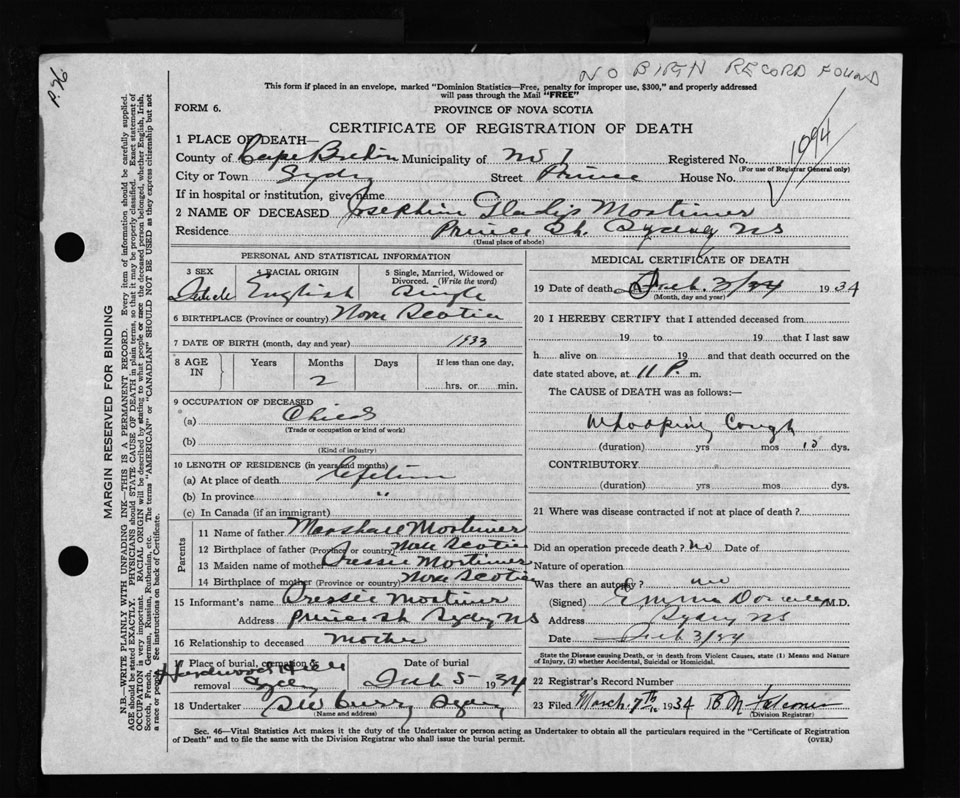 P. 76
NO BIRTH RECORD FOUND
This form if placed in an envelope, marked "Dominion Statistics—Free, penalty for improper use, $300," and properly addressed
will pass through the Mail "FREE"
FORM 6. PROVINCE OF NOVA SCOTIA
CERTIFICATE OF REGISTRATION OF DEATH
1094
1 PLACE OF DEATH—
County of Cape Breton Municipality of No 1 Registered No.
(For use of Registrar General only)
City or Town Sydney Street Prince House No.
If in hospital or institution, give name
2 NAME OF DECEASED Josephine Gladys Mortimer
Residence Prince St. Sydney NS
(Usual place of abode)
PERSONAL AND STATISTICAL INFORMATION
3 SEX 4 RACIAL ORIGIN 5 Single, Married, Widowed or Divorced. (Write the word)
English Single
6 BIRTHPLACE (Province or country) Nova Scotia
7 DATE OF BIRTH (month, day and year) 1933
8 AGE IN Years Months Days If less than one day,
2 hrs. or min.
9 OCCUPATION OF DECEASED
(a) Child
(Trade or occupation or kind of work)
(b)
(Kind of industry)
10 LENGTH OF RESIDENCE (in years and months)
(a) At place of death Lifetime
(b) In province "
(c) In Canada (if an immigrant)
Parents
11 Name of father Marshall Mortimer
12 Birthplace of father (Province or country) Nova Scotia
13 Maiden name of mother Mortimer
14 Birthplace of mother (Province or country) Nova Scotia
15 Informant's name Mortimer
Address Prince St Sydney NS
16 Relationship to deceased Mother
17 Place of burial, cremation or removal Hardwood Hill Sydney
Date of burial Feb 5 1934
18 Undertaker Sydney
(Name and address)
MEDICAL CERTIFICATE OF DEATH
19 Date of death Feb. 3/34 1934
(Month, day and year)
20 I HEREBY CERTIFY that I attended deceased from
19 to 19 that I last saw
h alive on 19 and that death occurred on the
date stated above, at 11 P. m.
The CAUSE OF DEATH was as follows:—
Whooping Cough
(duration) yrs mos 10 dys.
CONTRIBUTORY
(duration) yrs mos dys.
21 Where was disease contracted if not at place of death?
Did an operation precede death? no Date of
Nature of operation
Was there an autopsy? no
(Signed) Emma M.D.
Address Sydney NS
Date Feb 3/34
State the Disease causing Death, or in death from Violent Causes, state (1) Means and Nature
of Injury, (2) whether Accidental, Suicidal or Homicidal.
22 Registrar's Record Number
23 Filed March 7th 1934 B M Falconer
(Division Registrar)
Sec. 46—Vital Statistics Act makes it the duty of the Undertaker or person acting as Undertaker to obtain all the particulars required in the "Certificate of Registration
of Death" and to file the same with the Division Registrar who shall issue the burial permit. (OVER)
MARGIN RESERVED FOR BINDING
N.B.—WRITE PLAINLY WITH UNFADING INK—THIS IS A PERMANENT RECORD. Every item of information should be carefully supplied.
AGE should be stated EXACTLY. PHYSICIANS should STATE CAUSE OF DEATH in plain terms, so that it may be properly classified. Exact statement of
OCCUPATION is very important. RACIAL ORIGIN will be described by stating to what people or race the deceased person belonged, whether English, Irish,
Scotch, French, German, Russian, Ruthenian, etc. The terms "AMERICAN" or "CANADIAN" SHOULD NOT BE USED as they express citizenship but not
a race or people. See instructions on back of Certificate.